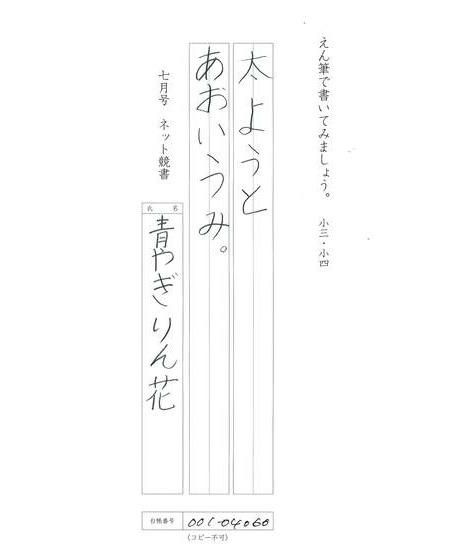 えん筆で書いてみましょう。 小三・小四
太ようと
あおいうみ。
七月号 ネット競書
氏名
青やぎりん花
台帳番号 001-04060
(コピー不可)